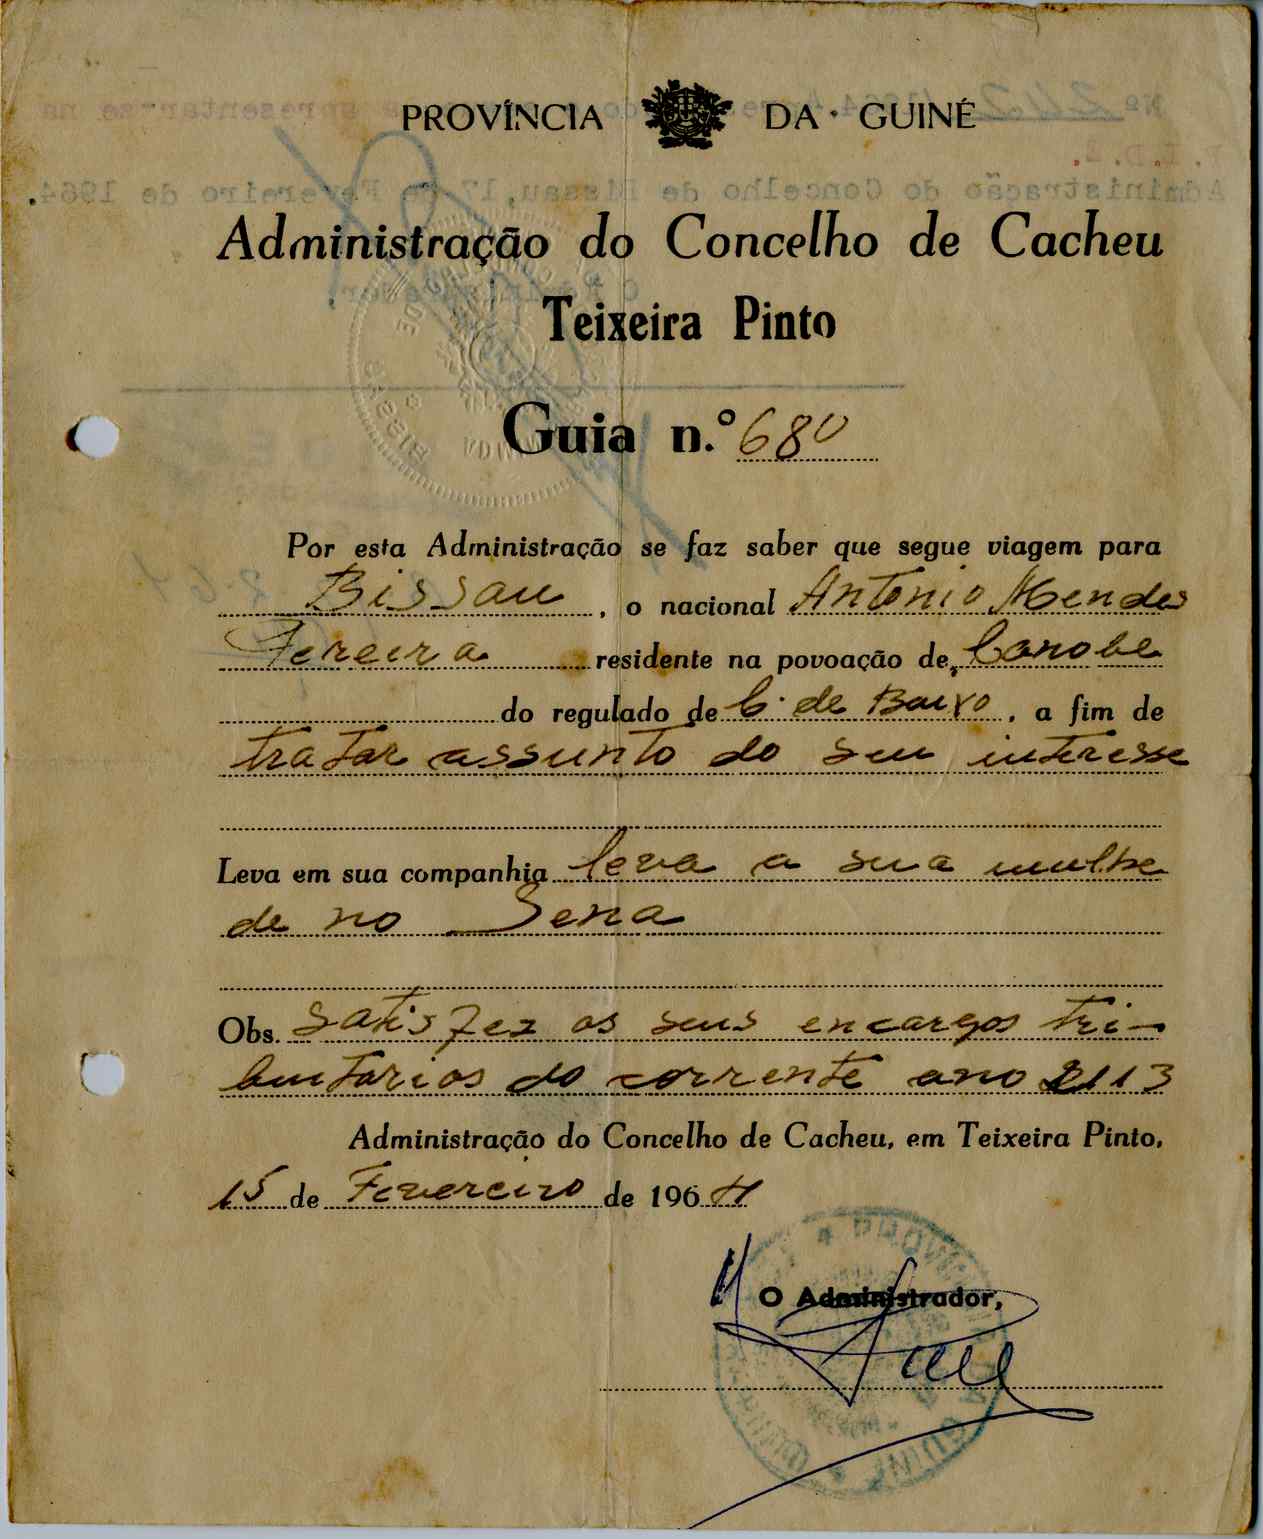 PROVÍNCIA DA GUINÉ
Administração do Concelho de Cacheu
Teixeira Pinto
Guia n.º 680
Por esta Administração se faz saber que segue viagem para
Bissau, o nacional António Mendes
Pereira residente na povoação de, Canobe
do regulado de C. de Baixo, a fim de
tratar assunto do seu interesse
Leva em sua companhia leva a sua mulhe
de no Sena
Obs. satisfez os seus encargos tri-
butarios do corrente ano 2113
Administração do Concelho de Cacheu, em Teixeira Pinto,
15 de Fevereiro de 1964
O Administrador,